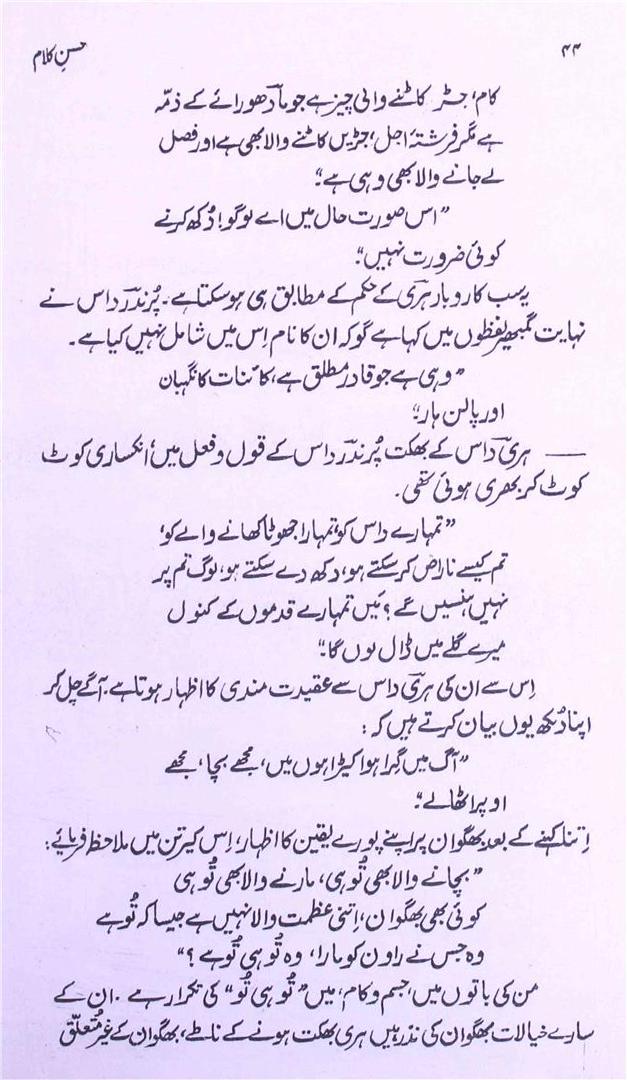 ۴۴
حسنِ کلام
کام، جڑ کاٹنے والی چیز ہے جو مادھورائے کے ذمّہ
ہے مگر فرشتۂ اجل، جڑیں کاٹنے والا بھی ہے اور فصل
لے جانے والا بھی وہی ہے۔"
"اس صورت حال میں اے لوگو! دُکھ کرنے
کوئی ضرورت نہیں"۔
یہ سب کاروبار ہری کے حکم کے مطابق ہی ہو سکتا ہے۔ پُرندر داس نے
نہایت گمبھیر لفظوں میں کہا ہے گو کہ ان کا نام اِس میں شامل نہیں کیا ہے۔
"وہی ہے جو قادر مطلق ہے، کائنات کا نگہبان
اور پالن ہار۔"
—— ہری داس کے بھکت پُرندر داس کے قول و فعل میں، انکساری کوٹ
کوٹ کر بھری ہوئی تھی۔
"تمہارے داس کو، تمہارا جھوٹا کھانے والے کو،
تم کیسے ناراض کر سکتے ہو، دکھ دے سکتے ہو، لوگ تم پر
نہیں ہنسیں گے؟ میں تمہارے قدموں کے کنول
میرے گلے میں ڈال لوں گا۔"
اِس سے ان کی ہری داس سے عقیدت مندی کا اظہار ہوتا ہے۔ آگے چل کر
اپنا دُکھ یوں بیان کرتے ہیں کہ :
"آگ میں گِرا ہوا کیڑا ہوں میں، مجھے بچا، مجھے
اوپر اٹھا لے"۔
اِتنا کہنے کے بعد بھگوان پر اپنے پورے یقین کا اظہار، اِس کیرتن میں ملاحظہ فرمایئے:
"بچانے والا بھی تُو ہی، مارنے والا بھی تُو ہی
کوئی بھی بھگوان، اِتنی عظمت والا نہیں ہے جیسا کہ تُو ہے
وہ جس نے راون کو مارا، وہ تُو ہی تُو ہے؟"
من کی باتوں میں، جسم و کام، میں "تُو ہی تُو" کی تکرار ہے۔ ان کے
سارے خیالات بھگوان کی نذر ہیں ہری بھکت ہونے کے ناطے، بھگوان کے غیر مُتعلّق